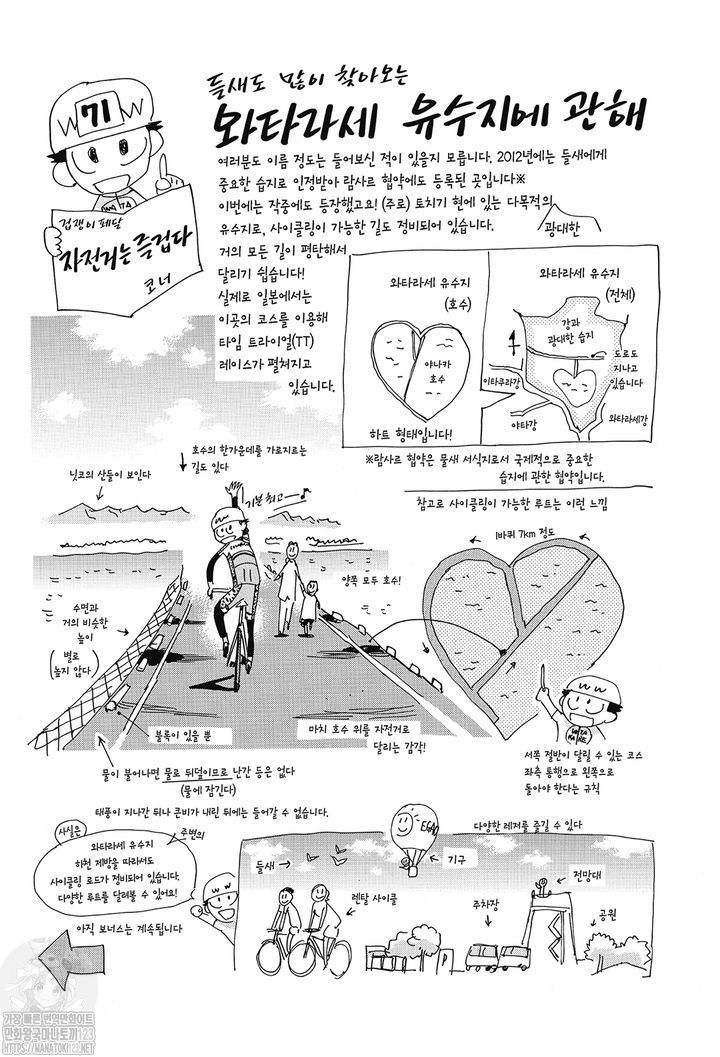 들새도 많이 찾아오는
와타라세 유수지에 관해
71
겁쟁이 페달
자전거는 즐겁다
코너
여러분도 이름 정도는 들어보신 적이 있을지 모릅니다. 2012년에는 들새에게
중요한 습지로 인정받아 람사르 협약에도 등록된 곳입니다※
이번에는 작중에도 등장했고요! (주로) 토치기 현에 있는 다목적의
유수지로, 사이클링이 가능한 길도 정비되어 있습니다.
광대한
거의 모든 길이 평탄해서
달리기 쉽습니다!
실제로 일본에서는
이곳의 코스를 이용해
타임 트라이얼(TT)
레이스가 펼쳐지고
있습니다.
와타라세 유수지
(호수)
야나카
호수
하트 형태입니다!
와타라세 유수지
(전체)
강과
광대한 습지
도로도
지나고
있습니다
이타쿠라강
야타강
와타라세강
※람사르 협약은 물새 서식지로서 국제적으로 중요한
습지에 관한 협약입니다.
참고로 사이클링이 가능한 루트는 이런 느낌
호수의 한가운데를 가로지르는
길도 있다
닛코의 산들이 보인다
기분 최고~♪
양쪽 모두 호수!
수면과
거의 비슷한
높이
(별로
높지 않다)
블록이 있을 뿐
마치 호수 위를 자전거로
달리는 감각!
물이 불어나면 물로 뒤덮이므로 난간 등은 없다
(물에 잠긴다)
태풍이 지나간 뒤나 큰비가 내린 뒤에는 들어갈 수 없습니다.
1바퀴 7km 정도
서쪽 절반이 달릴 수 있는 코스
좌측 통행으로 왼쪽으로
돌아야 한다는 규칙
사실은
주변의
와타라세 유수지
하천 제방을 따라서도
사이클링 로드가 정비되어 있습니다.
다양한 루트를 달려볼 수 있어요!
아직 보너스는 계속됩니다
다양한 레저를 즐길 수 있다
들새
기구
렌탈 사이클
주차장
전망대
공원
가장 빠른 번역만화이트
만화왕국마나토끼123
HTTPS://MANATOKI123.NET